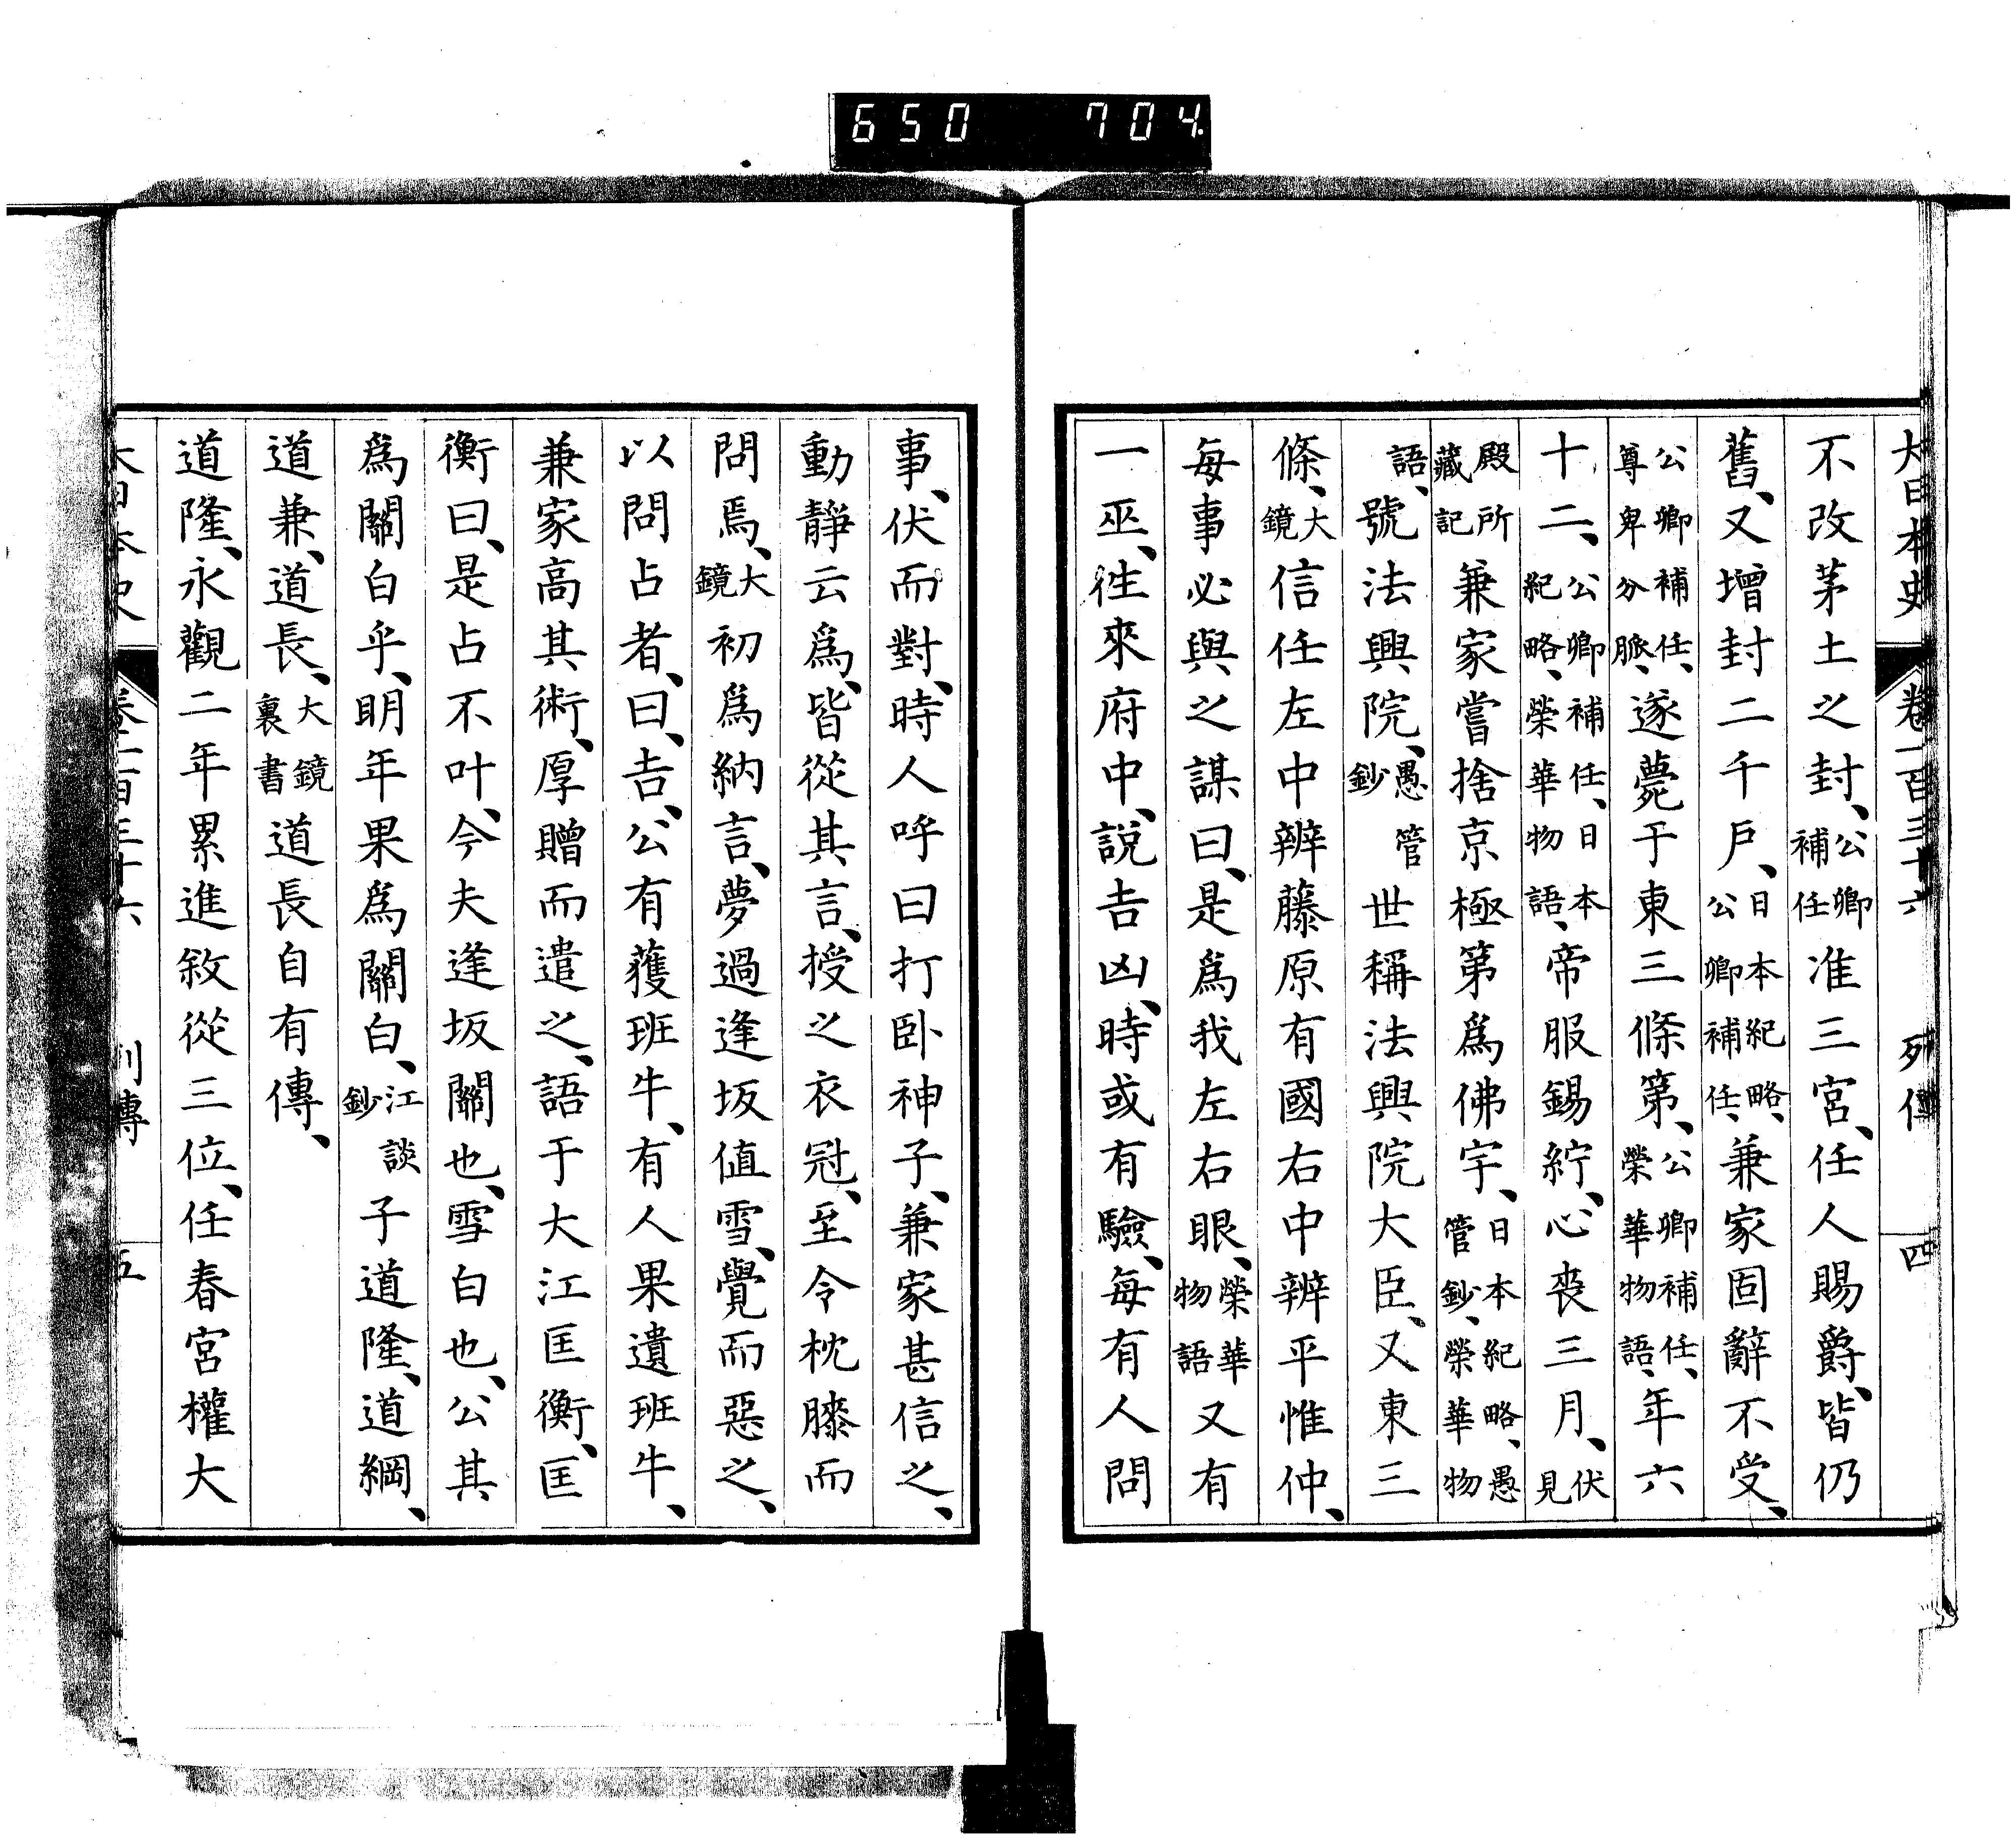 650 704
大日本史 卷一百三十六 列傳 四
不改茅土之封、公卿補任准三宮、任人賜爵、皆仍
舊、又增封二千戶、日本紀略、公卿補任、兼家固辭不受、
公卿補任、尊卑分脈、遂薨于東三條第、公卿補任、榮華物語、年六
十二、公卿補任、日本紀略、榮華物語、帝服錫紵、心喪三月、伏見
殿所藏記兼家嘗捨京極第爲佛宇、日本紀略、愚管鈔、榮華物
語、號法興院、愚管鈔世稱法興院大臣、又東三
條、大鏡信任左中辨藤原有國右中辨平惟仲、
每事必與之謀曰、是爲我左右眼、榮華物語又有
一巫、往來府中、說吉凶、時或有驗、每有人問
事、伏而對、時人呼曰打卧神子、兼家甚信之、
動靜云爲、皆從其言、授之衣冠、至令枕膝而
問焉、大鏡初爲納言、夢過逢坂値雪、覺而惡之、
以問占者、曰、吉、公有獲班牛、有人果遺班牛、
兼家高其術、厚贈而遣之、語于大江匡衡、匡
衡曰、是占不叶、今夫逢坂關也、雪白也、公其
爲關白乎、明年果爲關白、江談鈔子道隆、道綱、
道兼、道長、大鏡裏書道長自有傳、
道隆、永觀二年累進敘從三位、任春宮權大
大日本史 卷一百三十六 列傳 五